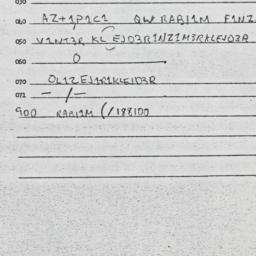 030
040 AZ+1P1C1 QW RABI1M F1NZ
050 V1NT3R KL EJD3R1NZ1M3RKLEJD3R
060 0
070 OL1ZEJ1R1KLEJD3R
071 - / -
900 RABI1M (/188100